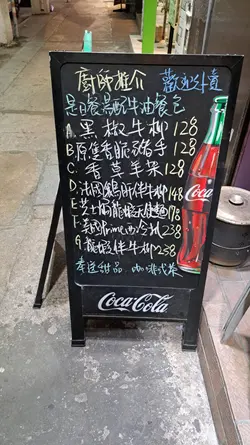 廚師推介 歡迎外賣
是日餐湯配牛油餐包
A. 黑椒牛柳 128
B. 原隻香脆豬手 128
C. 香草羊架 128
D. 法國鵝肝伴牛柳 148
E. 芝士焗龍蝦伴意麵 178
F. 美國Prime西冷扒 238
G. 龍蝦伴牛柳 258
奉送甜品 咖啡或茶
Coca-Cola
Coca-Cola